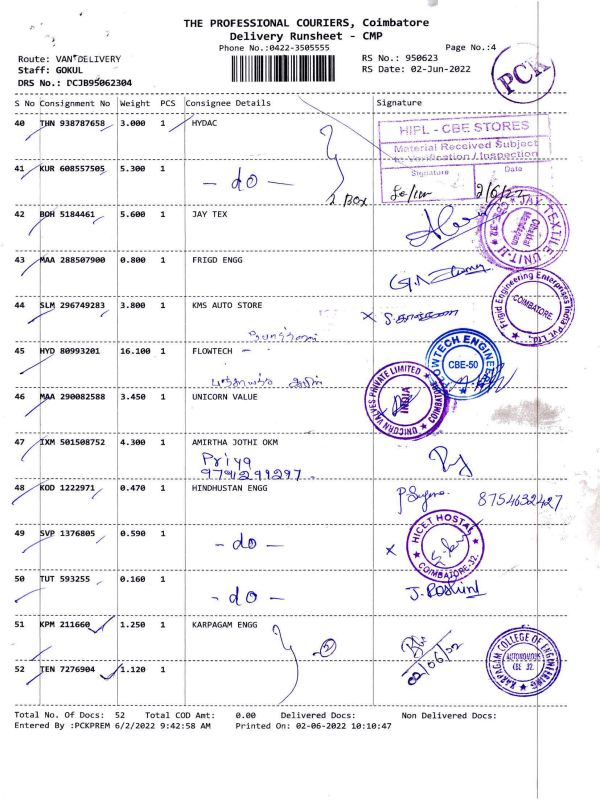 THE PROFESSIONAL COURIERS, Coimbatore
Delivery Runsheet - CMP
Phone No.:0422-3505555
Page No.:4
Route: VAN DELIVERY
RS No.: 950623
Staff: GOKUL
RS Date: 02-Jun-2022
DRS No.: DCJB95062304
PCK
S No Consignment No Weight PCS Consignee Details Signature
40 THN 938787658 3.000 1 HYDAC
HIPL - CBE STORES
Material Received Subject
to Verification / Inspection
Signature Date
41 KUR 608557505 5.300 1
- do - 2 Box 2/6/22
42 BOH 5184461 5.600 1 JAY TEX
JAY TEXTILE UNIT-II CBE-32
43 MAA 288507900 0.800 1 FRIGD ENGG
Frigid Engineering Enterprises India Pvt. Ltd.
COIMBATORE.
44 SLM 296749283 3.800 1 KMS AUTO STORE
45 HYD 80993201 16.100 1 FLOWTECH
FLOWTECH ENGINEE
CBE-50
46 MAA 290082588 3.450 1 UNICORN VALUE
UNICORN VALVES PRIVATE LIMITED COIMBATORE
INDIA
47 IXM 501508752 4.300 1 AMIRTHA JOTHI OKM
Priya
9791299297.
48 KOD 1222971 0.470 1 HINDHUSTAN ENGG
8754632427
49 SVP 1376805 0.590 1
- do - x
HICET HOSTAL
COIMBATORE-32.
50 TUT 593255 0.160 1
- do - J. Roshini
51 KPM 211660 1.250 1 KARPAGAM ENGG
2
02/06/22
KARPAGAM COLLEGE OF ENGINEERING
AUTONOMOUS
CBE 32.
52 TEN 7276904 1.120 1
Total No. Of Docs: 52 Total COD Amt: 0.00 Delivered Docs: Non Delivered Docs:
Entered By :PCKPREM 6/2/2022 9:42:58 AM Printed On: 02-06-2022 10:10:47